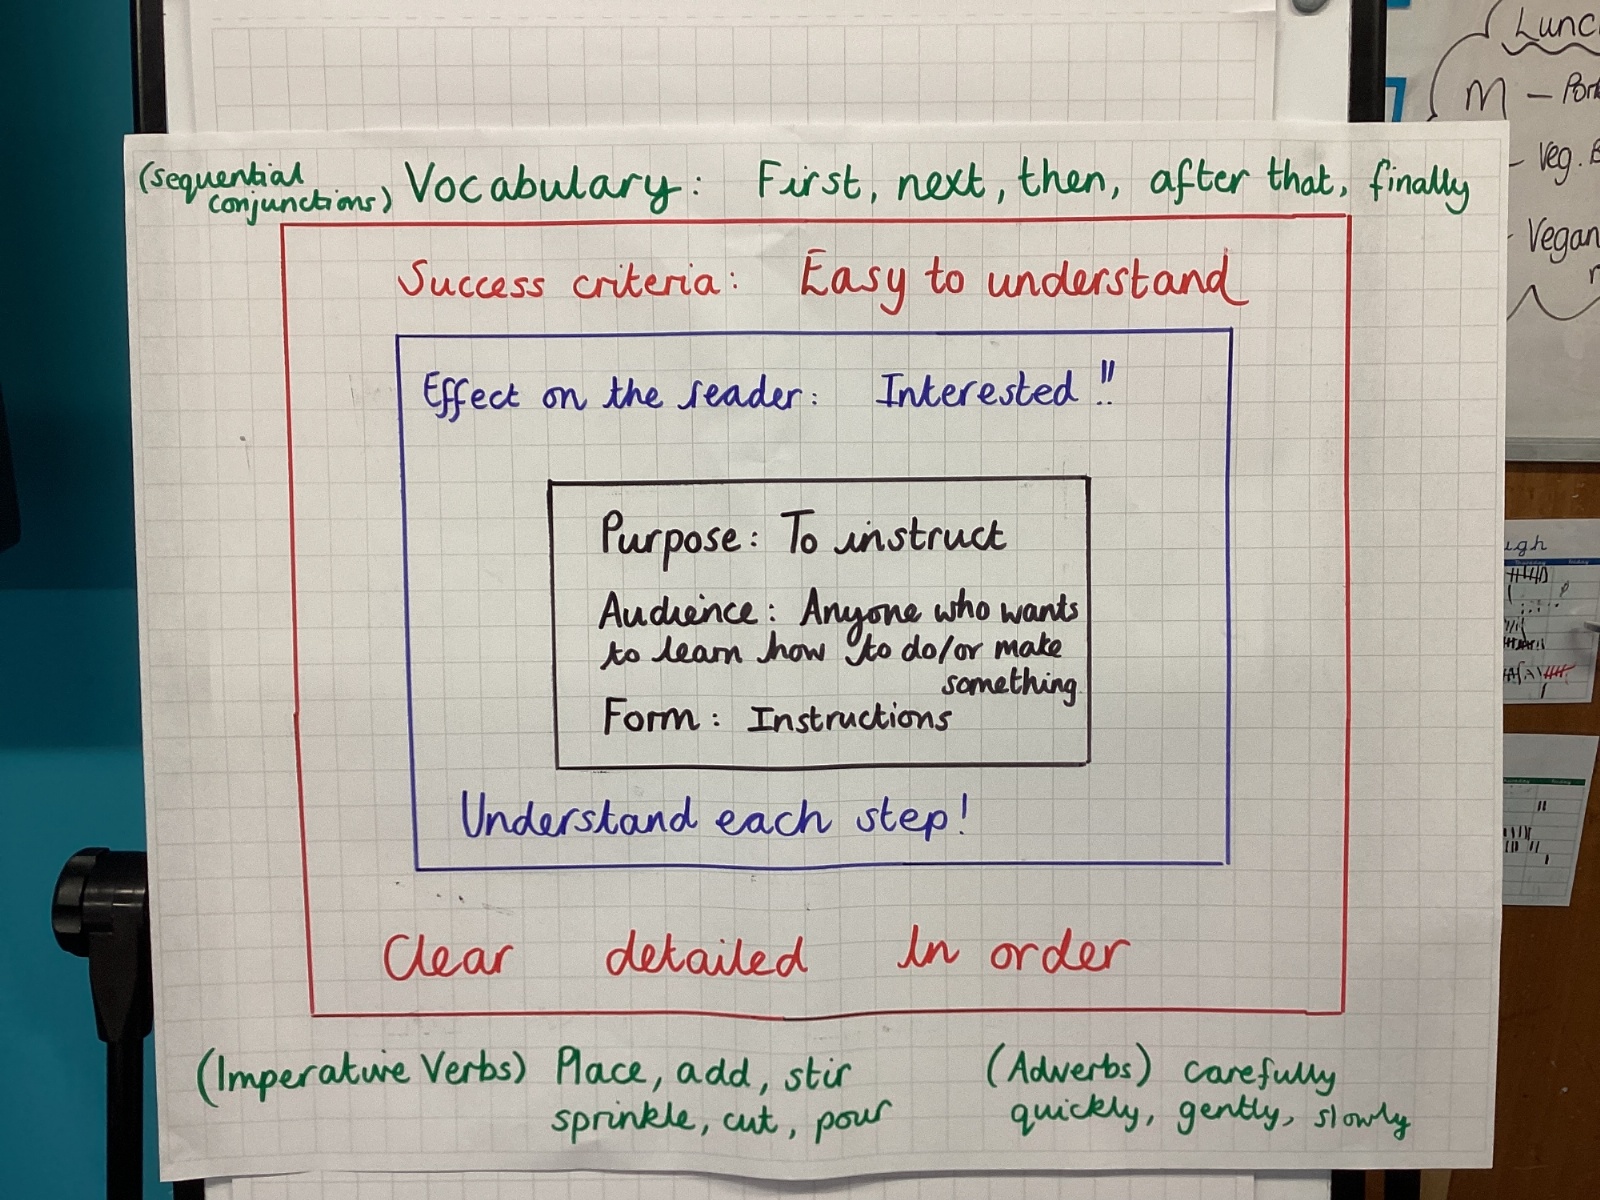 (sequential conjunctions) Vocabulary: First, next, then, after that, finally
Success criteria: Easy to understand
Effect on the reader: Interested!!
Purpose: To instruct
Audience: Anyone who wants
to learn how to do/or make
something
Form: Instructions
Understand each step!
Clear detailed In order
(Imperative Verbs) Place, add, stir
sprinkle, cut, pour
(Adverbs) carefully
quickly, gently, slowly
M -
- Veg.
- Vegan